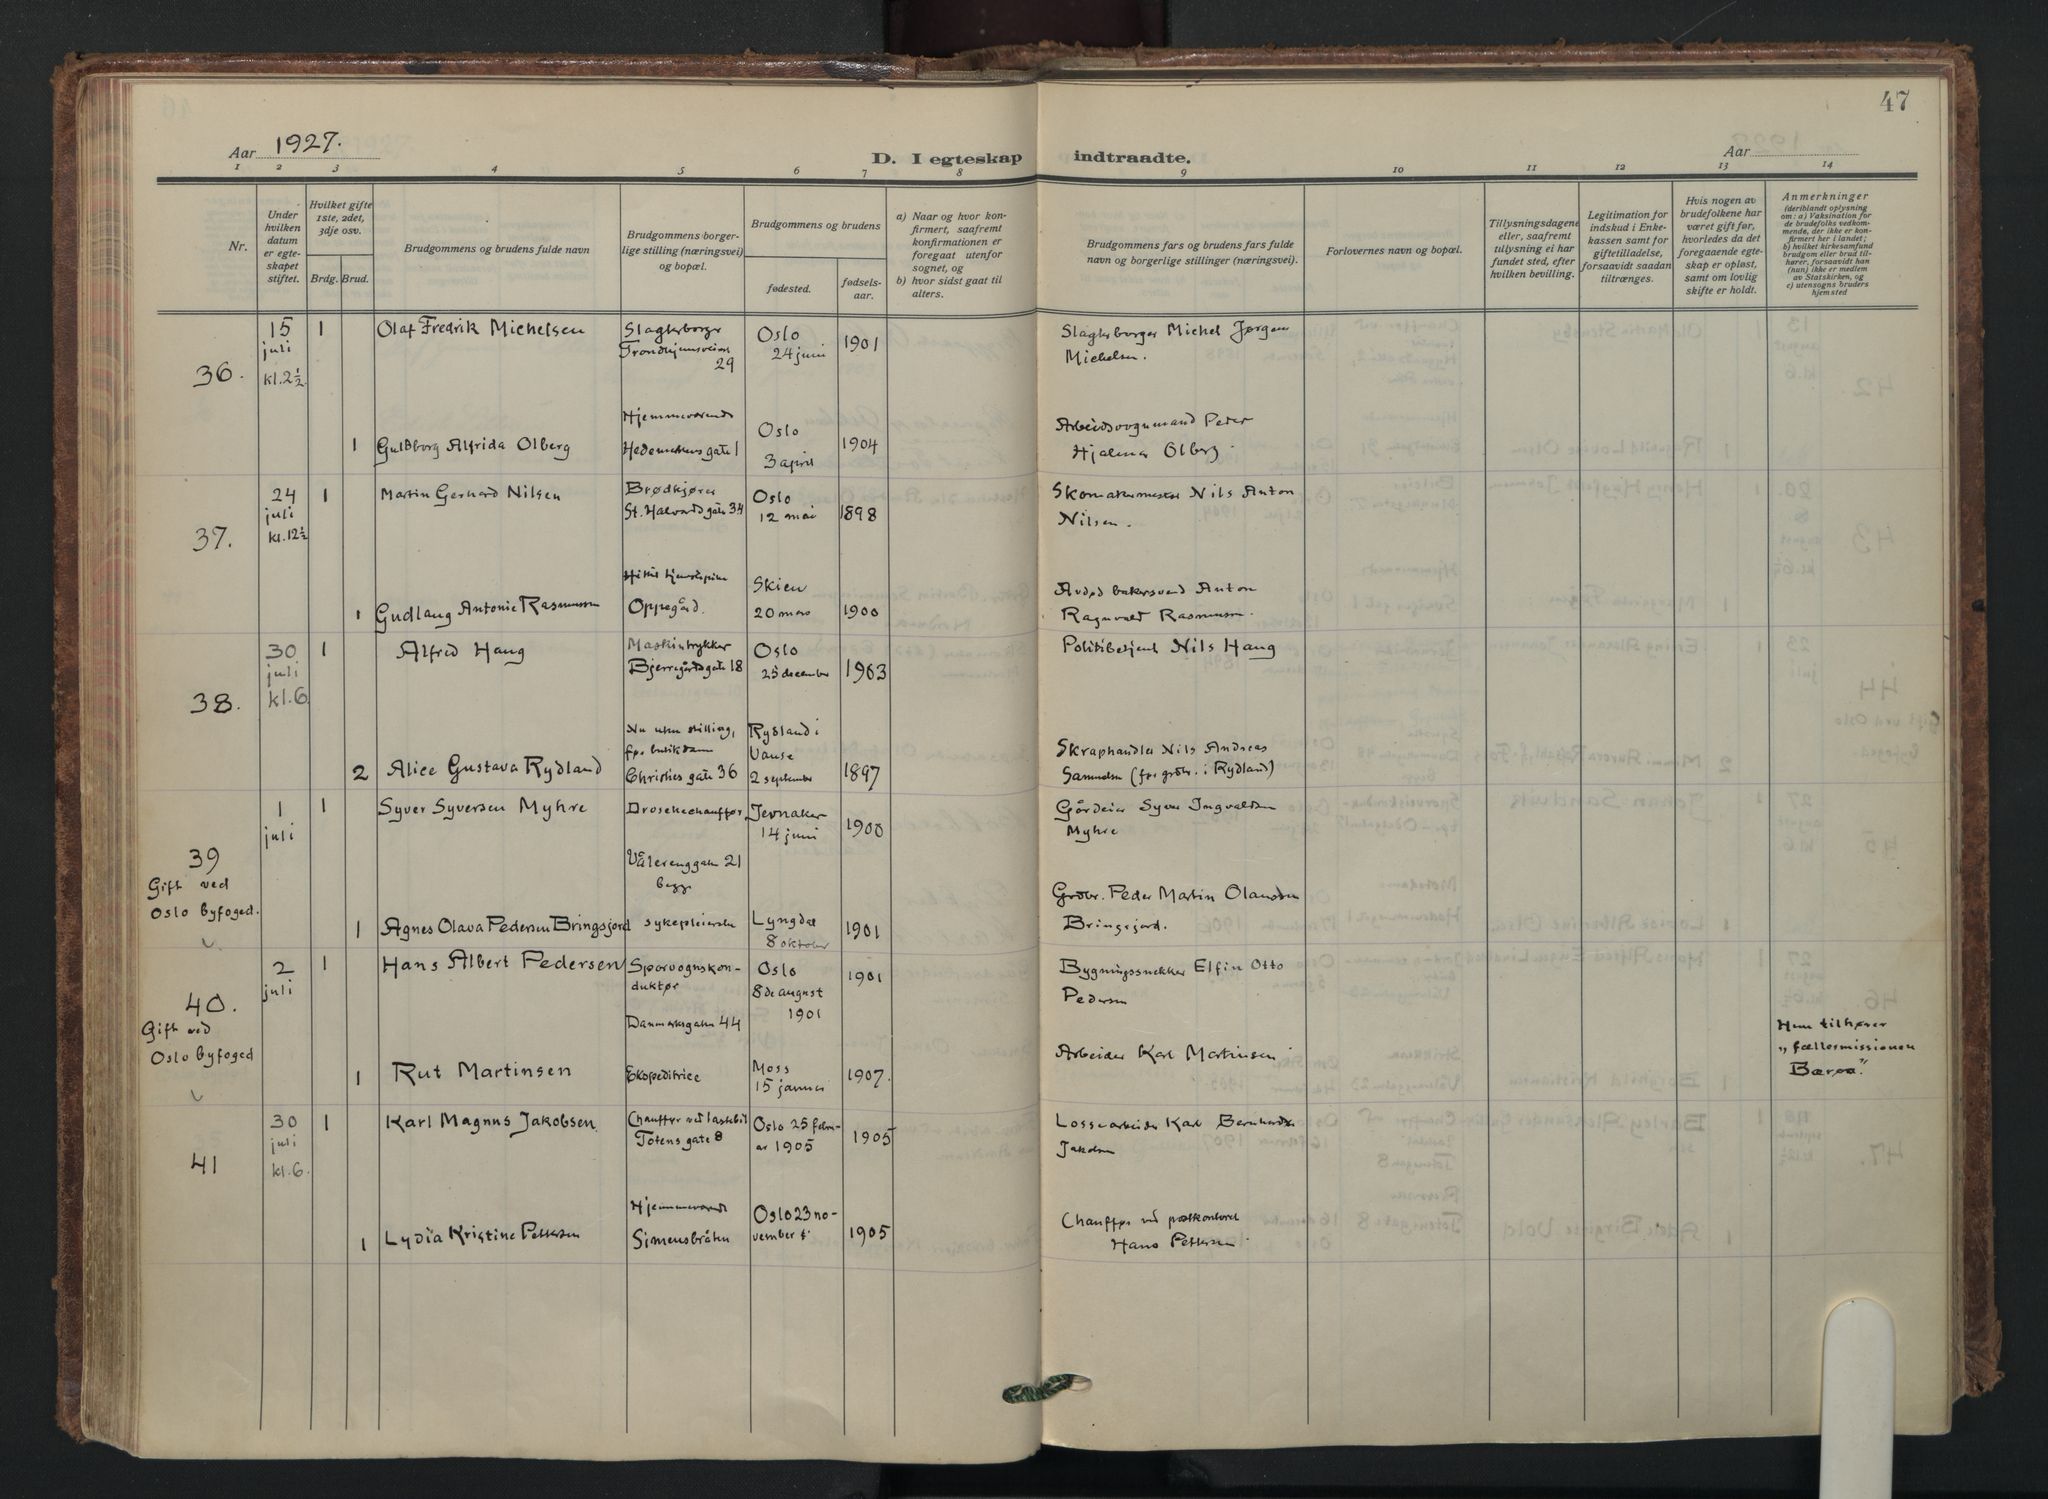 47
Aar 1927.
D. I egteskap indtraadte.
Aar
1 2 3 4 5 6 7 8 9 10 11 12 13 14
Nr.
Under hvilken datum er egteskapet stiftet.
Hvilket gifte 1ste, 2det, 3dje osv.
Brdg. Brud.
Brudgommens og brudens fulde navn
Brudgommens borgerlige stilling (næringsvei) og bopæl.
Brudgommens og brudens
fødested.
fødselsaar.
a) Naar og hvor konfirmert, saafremt konfirmationen er foregaat utenfor sognet, og
b) hvor sidst gaat til alters.
Brudgommens fars og brudens fars fulde navn og borgerlige stillinger (næringsvei).
Forlovernes navn og bopæl.
Tillysningsdagene eller, saafremt tillysning ei har fundet sted, efter hvilken bevilling.
Legitimation for indskud i Enkekassen samt for giftetilladelse, forsaavidt saadan tiltrænges.
Hvis nogen av brudefolkene har været gift før, hvorledes da det foregaaende egteskap er opløst, samt om lovlig skifte er holdt.
Anmerkninger
(deriblandt oplysning om: a) Vaksination for de brudefolks vedkommende, der ikke er konfirmert her i landet; b) hvilket kirkesamfund brudgom eller brud tilhører, forsaavidt han (hun) ikke er medlem av Statskirken, og c) utensogns bruders hjemsted
36.
15 juli kl. 2½
1
Olaf Fredrik Michelsen
Slagterborger
Trondhjemsveien 29
Oslo
24 juni
1901
Slagterborger Michel Jørgen
Michelsen.
1
Guldborg Alfrida Olberg
Hjemmeværende
Hedemarkens gate 1
Oslo
3 april
1904
Arbeidsvognmand Peder
Hjalmar Olberg.
37.
24 juli kl. 12½
1
Martin Gerhard Nilsen
Brødkjører
St. Halvards gate 34
Oslo
12 mai
1898
Skomakermester Nils Anton
Nilsen.
1
Gudlaug Antonie Rasmussen
Oppegård.
Skien
20 mars
1900
Avdød bakersvend Anton
Ragnvald Rasmussen.
38.
30 juli kl. 6
1
Alfred Haug
Maskintrykker
Bjerregårds gate 18
Oslo
25 december
1903
Politibetjent Nils Haug
2
Alice Gustava Rydland
Nu uten stilling,
før butikdam
Christies gate 36
Rydland i
Vanse
2 september
1897
Skraphandler Nils Andreas
Samuelsen (før grdbr. i Rydland)
39
Gift ved
Oslo byfoged.
1 juli
1
Syver Syversen Myhre
Droschechauffør,
Vålerenggaten 21
begge
Jevnaker
14 juni
1900
Gårdeier Syver Ingvaldsen
Myhre
1
Agnes Olava Pedersen Bringsjord
sykepleierske
Lyngdal
8 oktober
1901
Grdbr. Peder Martin Olaussen
Bringsjord.
40.
Gift ved
Oslo byfoged
2 juli
1
Hans Albert Pedersen
Sporvognskon-
duktør
Danmarksgaten 44
Oslo
8de august
1901
1901
Bygningssnekker Elfin Otto
Pedersen
1
Rut Martinsen
Ekspeditrice
Moss
15 januar
1907.
Arbeider Karl Martinsen
Hun tilhører
„fællesmissionen
Bærøa".
41
30 juli kl. 6.
1
Karl Magnus Jakobsen.
Chauffør ved lastebil
Totens gate 8
Oslo 25 febru-
ar 1905
1905
Lossearbeider Karl Bernhard
Jakobsen
1
Lydia Kristine Pettersen
Hjemmeværende
Simensbråten
Oslo 23 no-
vember
1905
Chauffør ved postkontoret
Hans Pettersen